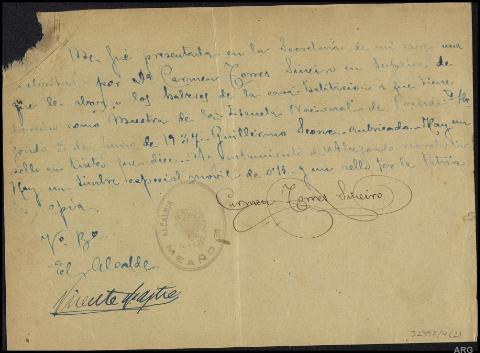 que fué presentada en la Secretaría de mi cargo una
por Dª Carmen Torres Sineiro en súplica de
que le abonen los haberes de la casa-habitación a que tiene
derecho como Maestra de la Escuela Nacional de
de Enero de 1937. Guillermo rubricado. Hay un
sello en tinta que dice. Ayuntamiento de
Hay un timbre especial móvil de 0'15 y un sello por la Patria
Es copia.
Carmen Torres Sineiro
Vº Bº
El Alcalde
ALCALDIA
MEAÑO
Vicente
ARG